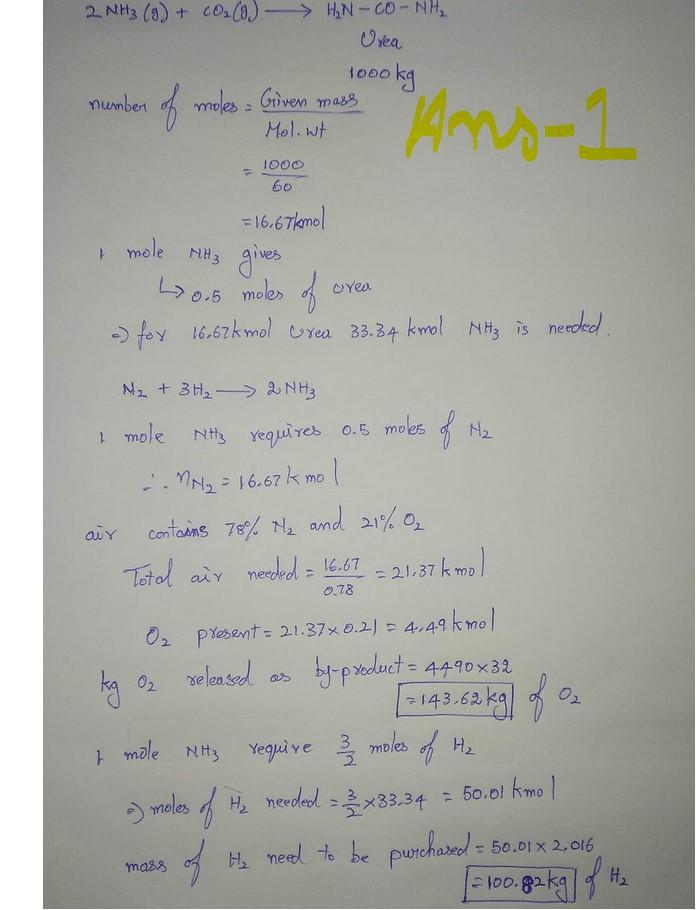 2 NH3 (g) + CO2 (g) ⟶ H2N - CO - NH2
Urea
1000 kg
number of moles = Given mass / Mol. wt
Ans-1
= 1000 / 60
= 16.67 kmol
1 mole NH3 gives
↳ 0.5 moles of urea
⇒ for 16.67 kmol Urea 33.34 kmol NH3 is needed.
N2 + 3H2 ⟶ 2NH3
1 mole NH3 requires 0.5 moles of N2
∴ nN2 = 16.67 kmol
air contains 78% N2 and 21% O2
Total air needed = 16.67 / 0.78 = 21.37 kmol
O2 present = 21.37 × 0.21 = 4.49 kmol
kg O2 released as by-product = 4490 × 32
= 143.62 kg of O2
1 mole NH3 require 3/2 moles of H2
⇒ moles of H2 needed = 3/2 × 33.34 = 50.01 kmol
mass of H2 need to be purchased = 50.01 × 2.016
= 100.82 kg of H2